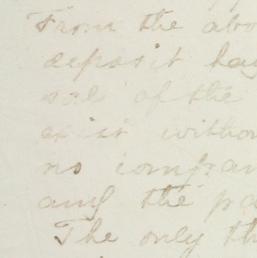 From the abo
deposit hav
sal of the
exist withou
no compan
any the pa
The only th